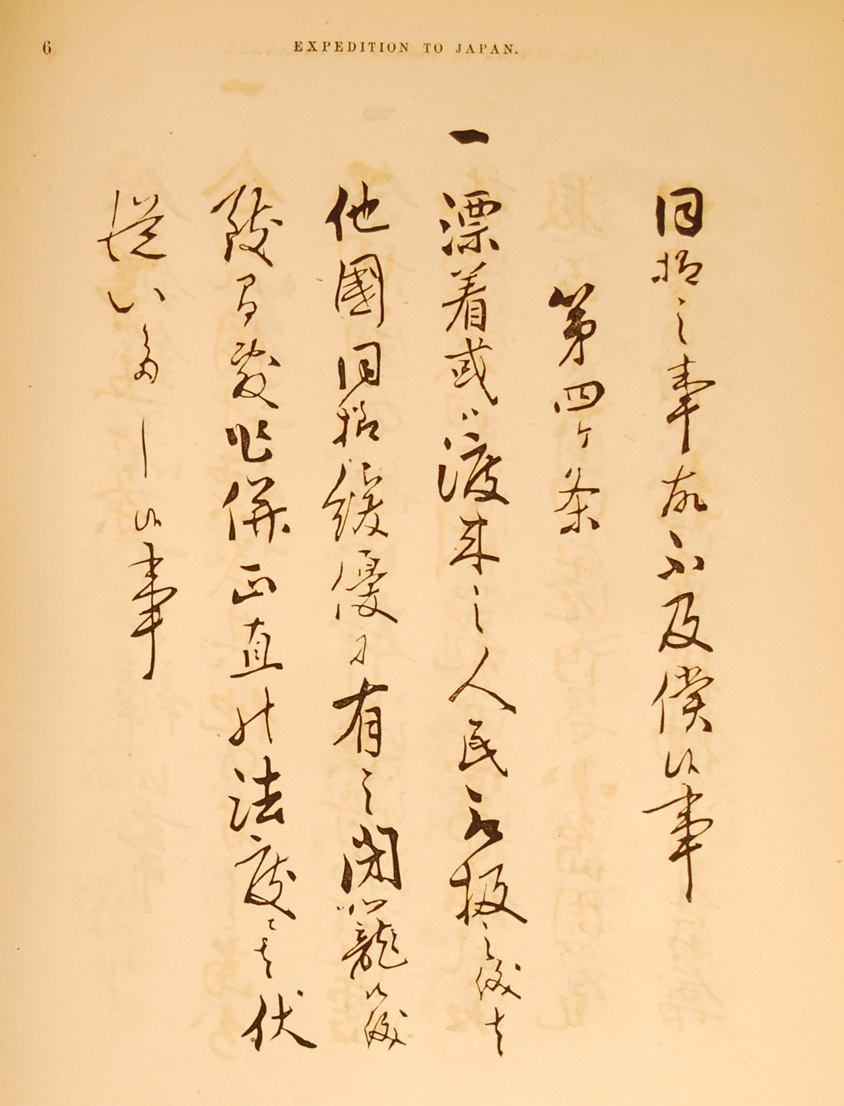 6 EXPEDITION TO JAPAN.
同様之事故不及償候事
第四ヶ条
一漂着或ハ渡来之人民取扱之儀者
他國同様緩優ニ有之閉籠候儀
致間敷乍併正直の法度ニ者伏
従いたし候事